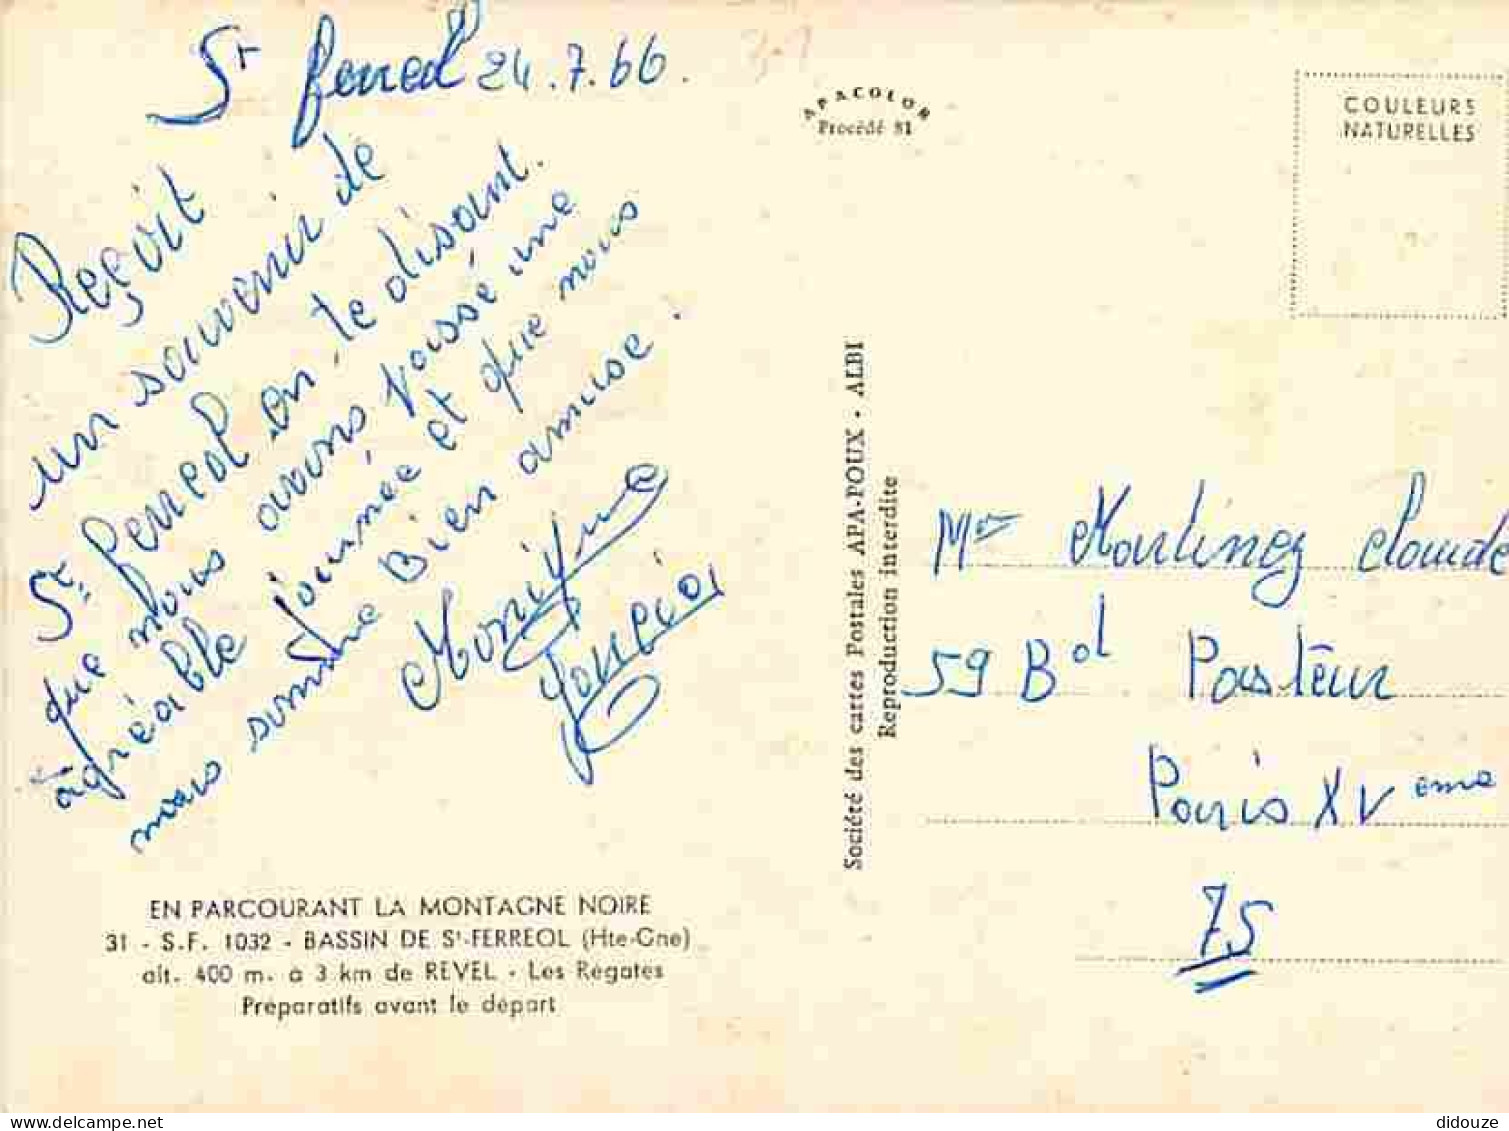 St ferreol 24.7.66.
Reçoit
un souvenir de
St. ferreol en te disant.
que nous avons passé une
agréable journée et que nous
nous somme Bien amuse.
Monique
31
APACOLOR
Procédé 81
COULEURS
NATURELLES
Société des cartes Postales APA-POUX - ALBI
Reproduction interdite
Mr Martinez Claude
59 Bd Pasteur
Paris XVeme
75
EN PARCOURANT LA MONTAGNE NOIRE
31 - S.F. 1032 - BASSIN DE St-FERREOL (Hte-Gne)
alt. 400 m. à 3 km de REVEL - Les Régates
Préparatifs avant le départ
didouze